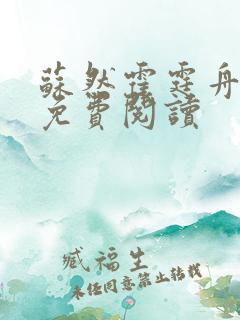 蘇然霍霆舟
免費閱讀
臧福生
未经同意禁止转载